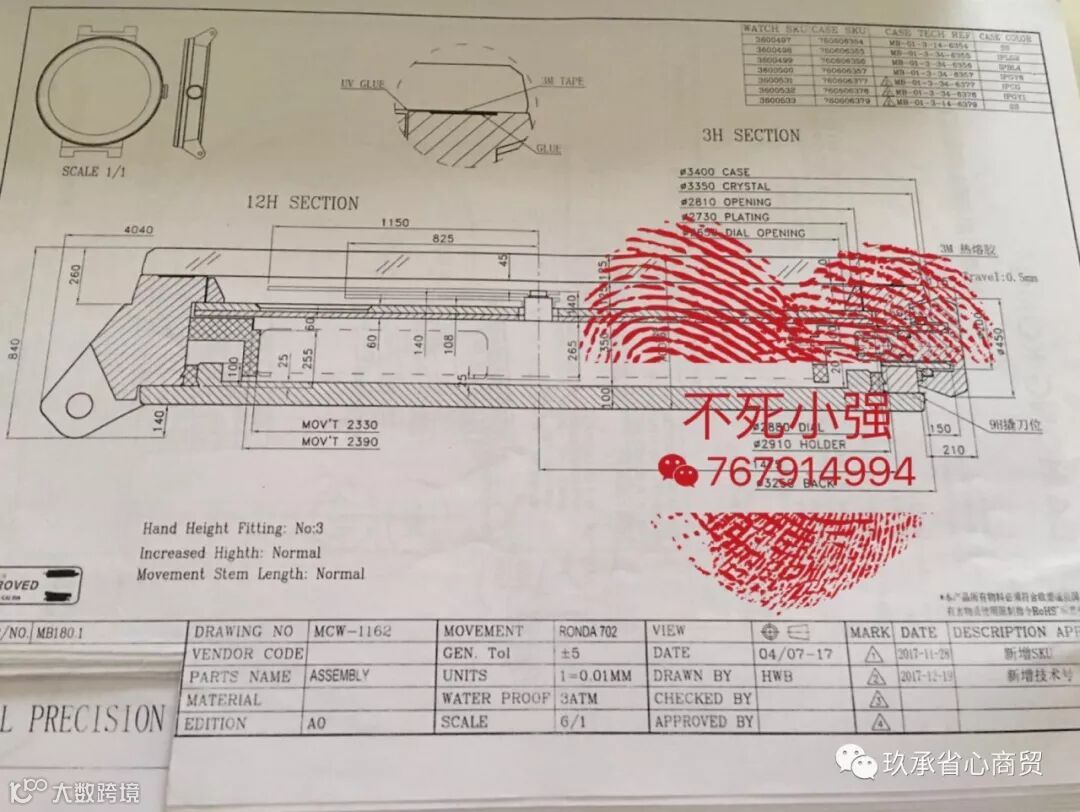 WATCH SKU CASE SKU CASE TECH REF CASE COLOR
3600497 760606354 MB-01-3-14-6354 SS
3600498 760606355 MB-01-3-34-6355
3600499 760606356 MB-01-3-34-6356 IPBLA
3600500 760606357 MB-01-3-34-6357
3600531 760606377 MB-01-3-34-6377 IPCG
3600532 760606378 MB-01-3-34-6378 IPGY1
3600533 760606379 MB-01-3-14-6379 SS
SCALE 1/1
UV GLUE
3M TAPE
GLUE
3H SECTION
ø3400 CASE
ø3350 CRYSTAL
ø2810 OPENING
ø2730 PLATING
DIAL OPENING
12H SECTION
4040
1150
825
45
260
840
140
3M 热熔胶
Travel:0.5mm
60
255
25
100
60
140
108
265
350
100
ø450
MOV'T 2330
MOV'T 2390
不死小强
767914994
ø2880 DIAL
ø2910 HOLDER
ø3250 BACK
150
210
9H撬刀位
Hand Height Fitting: No:3
Increased Highth: Normal
Movement Stem Length: Normal
ROVED
*本产品所有物料必须符合欧盟
RoHS
/NO. MB180.1
DRAWING NO MCW-1162 MOVEMENT RONDA 702 VIEW MARK DATE DESCRIPTION APP
VENDOR CODE GEN. Tol ±5 DATE 04/07-17 1 2017-11-28 新增SKU
PARTS NAME ASSEMBLY UNITS 1=0.01MM DRAWN BY HWB 2 2017-12-19 新增技术号
MATERIAL WATER PROOF 3ATM CHECKED BY 3
EDITION A0 SCALE 6/1 APPROVED BY 4
L PRECISION
玖承省心商贸
大数跨境